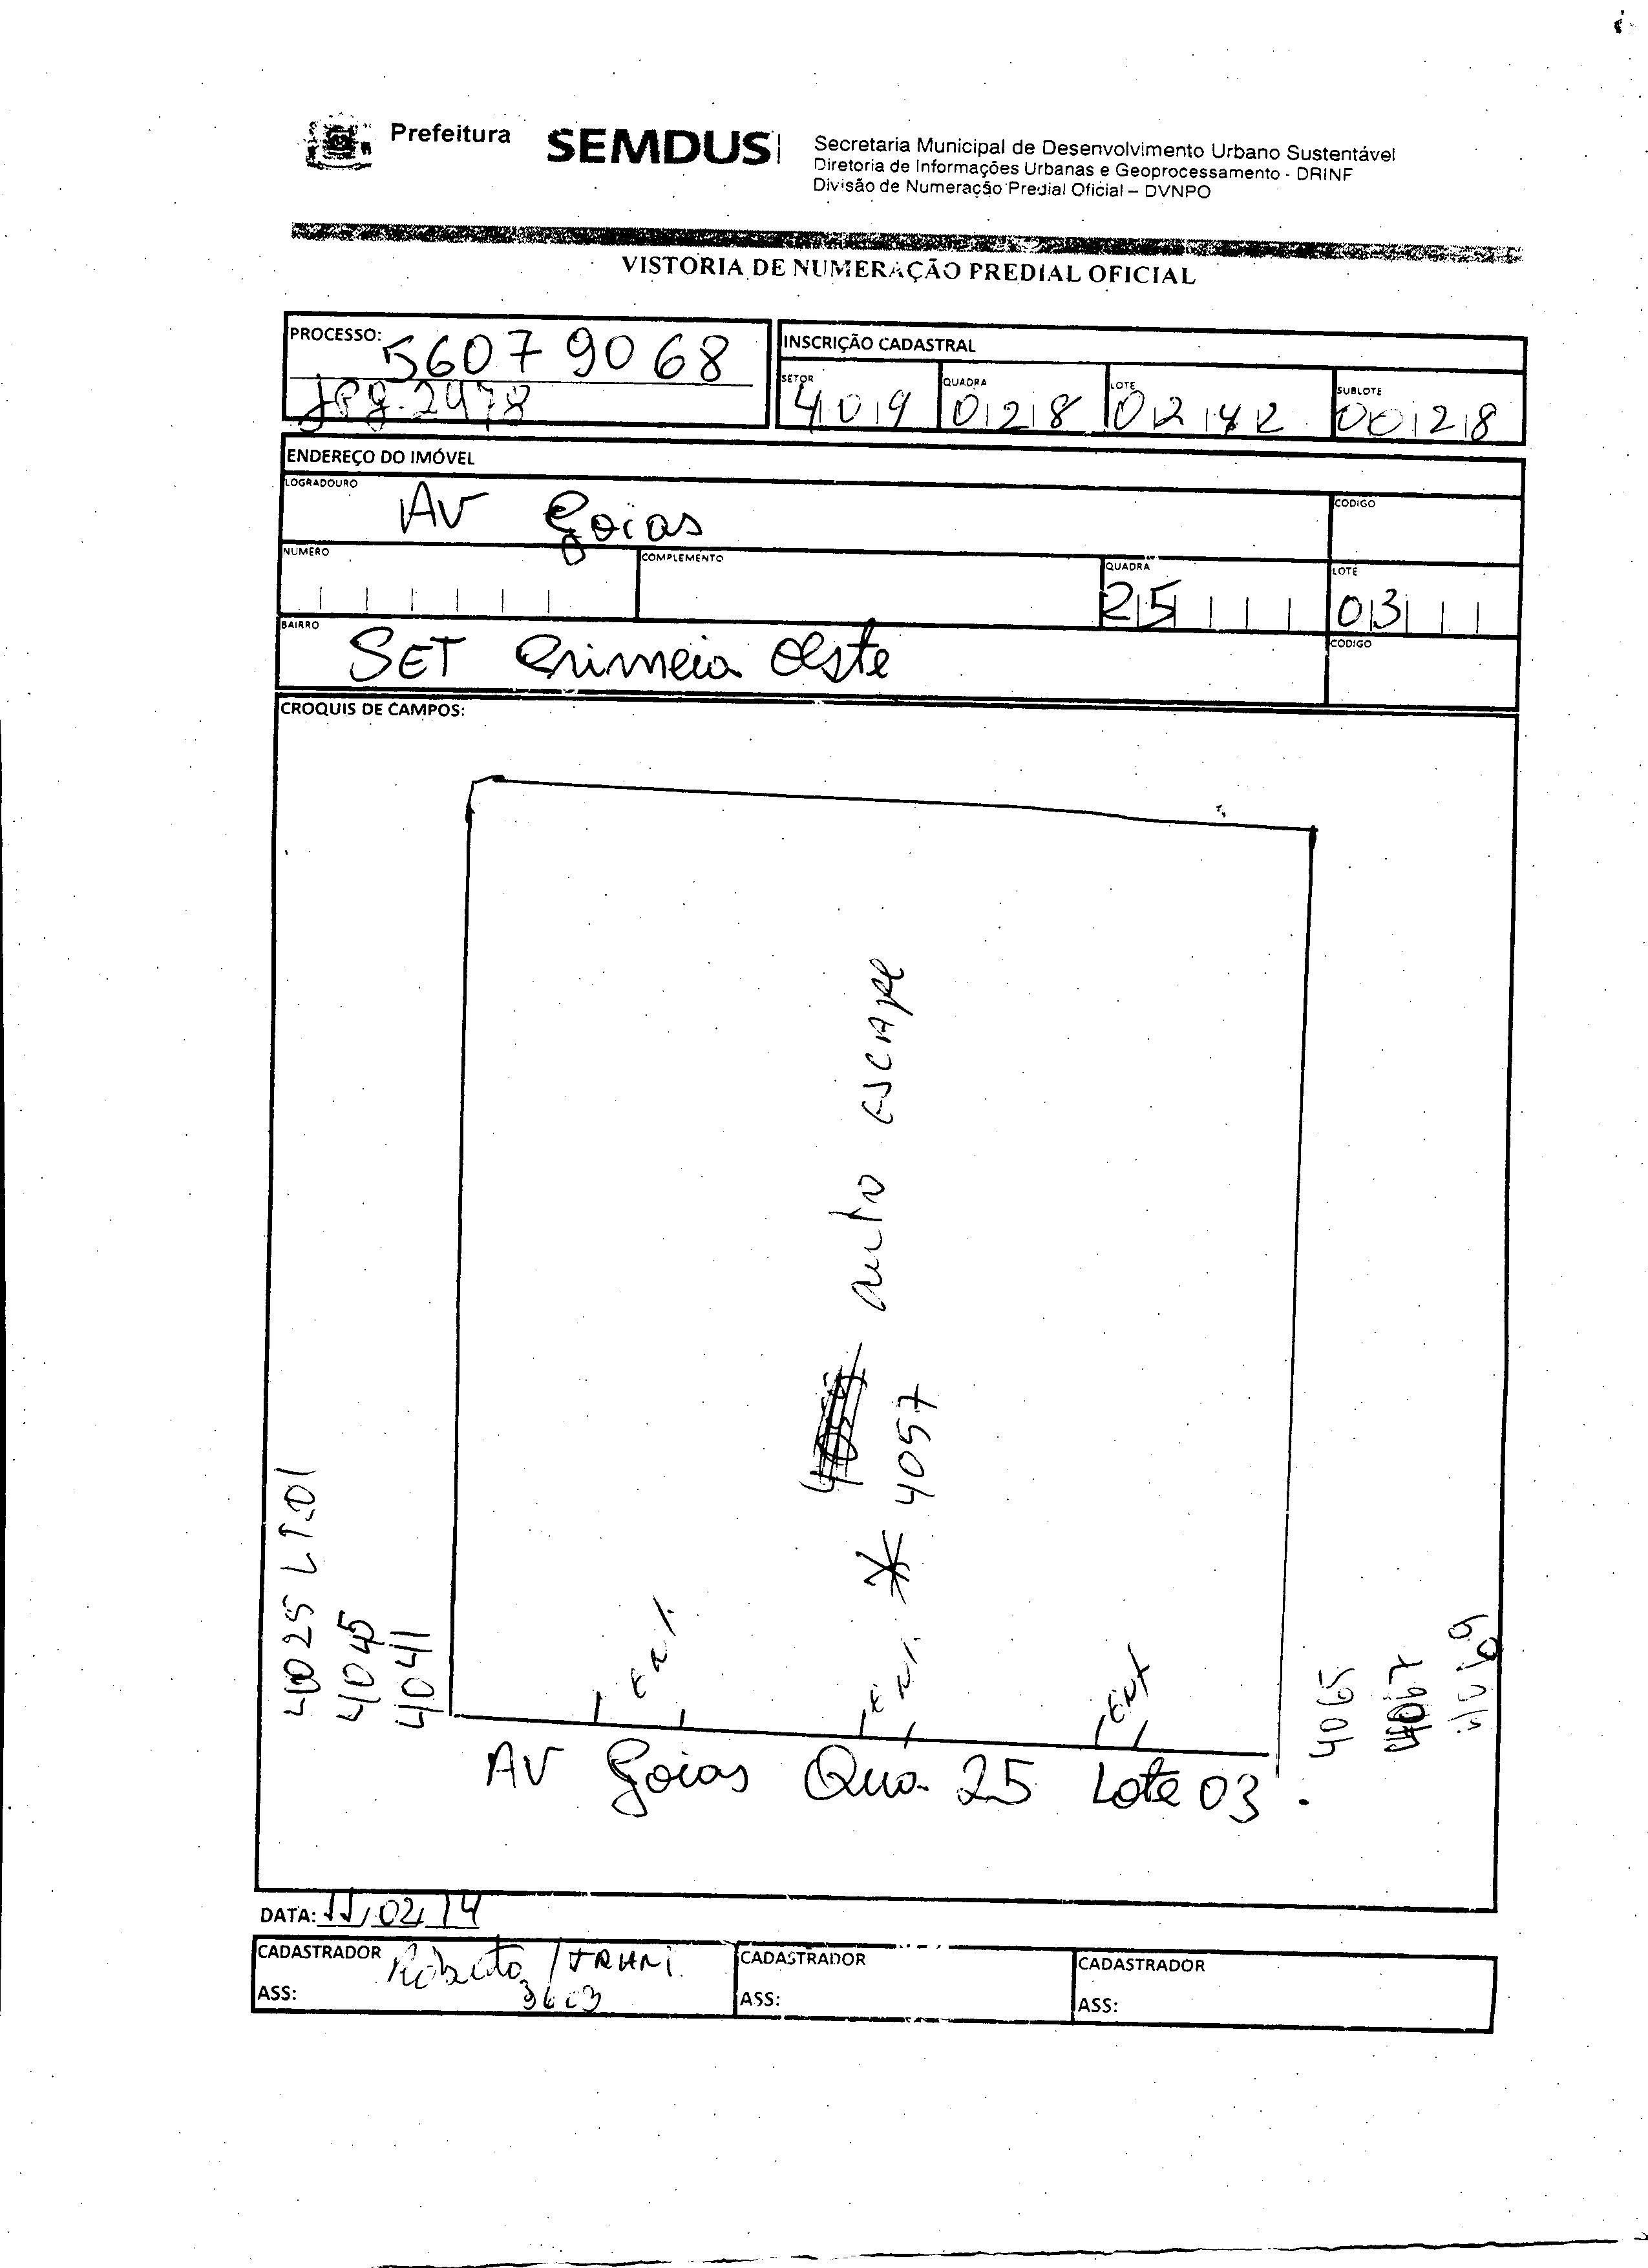 Prefeitura SEMDUS
Secretaria Municipal de Desenvolvimento Urbano Sustentável
Diretoria de Informações Urbanas e Geoprocessamento - DRINF
Divisão de Numeração Predial Oficial – DVNPO
VISTORIA DE NUMERAÇÃO PREDIAL OFICIAL
PROCESSO: 56079068
JPg. 2478
INSCRIÇÃO CADASTRAL
SETOR 409 QUADRA 028 LOTE 0242 SUBLOTE 0028
ENDEREÇO DO IMÓVEL
LOGRADOURO AV Goias CODIGO
NUMERO COMPLEMENTO QUADRA 25 LOTE 03
BAIRRO SET Crimeia Oeste CODIGO
CROQUIS DE CAMPOS:
auto escape
* 4057
4025 LT.01
4045
4041
ENT.
ENT.
ENT
4065
4067
4069
AV Goias Qua. 25 Lote 03.
DATA: 11/02/14
CADASTRADOR Roberto / CADASTRADOR CADASTRADOR
ASS: 3603 ASS: ASS: